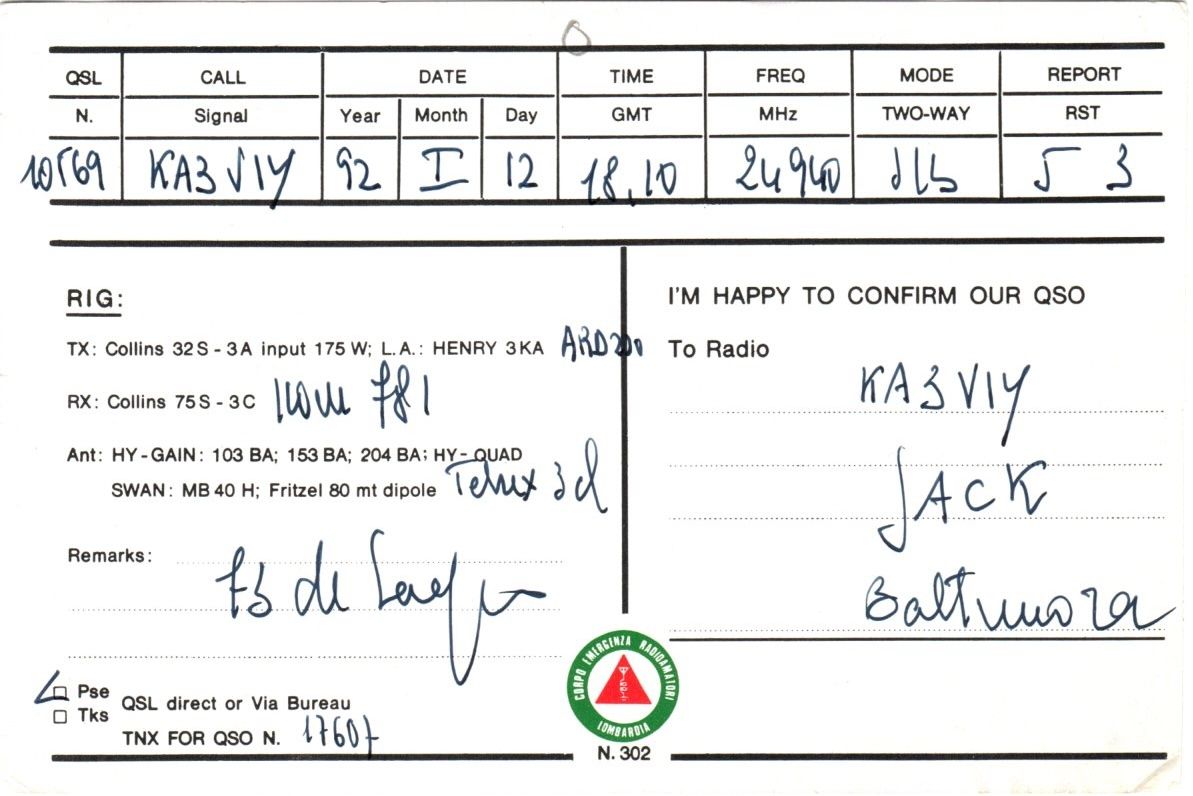 QSL CALL DATE TIME FREQ MODE REPORT
N. Signal Year Month Day GMT MHz TWO-WAY RST
10569 KA3VIY 92 I 12 18.10 24940 5 3
RIG:
TX: Collins 32S-3A input 175 W; L.A.: HENRY 3KA
RX: Collins 75S-3C Icom 781
Ant: HY-GAIN: 103 BA; 153 BA; 204 BA; HY-QUAD
SWAN: MB 40 H; Fritzel 80 mt dipole
Remarks: 73 de
Pse
Tks
QSL direct or Via Bureau
TNX FOR QSO N. 17607
I'M HAPPY TO CONFIRM OUR QSO
To Radio
KA3VIY
JACK
Baltimora
CORPO EMERGENZA RADIOAMATORI
LOMBARDIA
N. 302